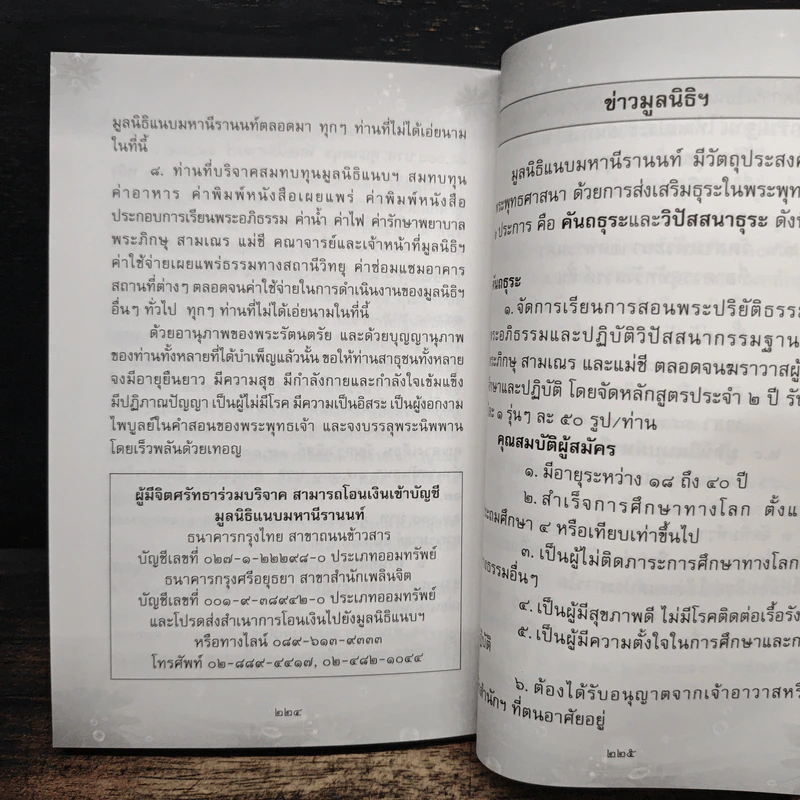 มูลนิธิแนบมหานีรานนท์ตลอดมา ทุกๆ ท่านที่ไม่ได้เอ่ยนาม
ในที่นี้
๘. ท่านที่บริจาคสมทบทุนมูลนิธิแนบฯ สมทบทุน
ค่าอาหาร ค่าพิมพ์หนังสือเผยแพร่ ค่าพิมพ์หนังสือ
ประกอบการเรียนพระอภิธรรม ค่าน้ำ ค่าไฟ ค่ารักษาพยาบาล
พระภิกษุ สามเณร แม่ชี คณาจารย์และเจ้าหน้าที่มูลนิธิฯ
ค่าใช้จ่ายเผยแพร่ธรรมทางสถานีวิทยุ ค่าซ่อมแซมอาคาร
สถานที่ต่างๆ ตลอดจนค่าใช้จ่ายในการดำเนินงานของมูลนิธิฯ
อื่นๆ ทั่วไป ทุกๆ ท่านที่ไม่ได้เอ่ยนามในที่นี้
ด้วยอานุภาพของพระรัตนตรัย และด้วยบุญญานุภาพ
ของท่านทั้งหลายที่ได้บำเพ็ญแล้วนั้น ขอให้ท่านสาธุชนทั้งหลาย
จงมีอายุยืนยาว มีความสุข มีกำลังกายและกำลังใจเข้มแข็ง
มีปฏิภาณปัญญา เป็นผู้ไม่มีโรค มีความเป็นอิสระ เป็นผู้งอกงาม
ไพบูลย์ในคำสอนของพระพุทธเจ้า และจงบรรลุพระนิพพาน
โดยเร็วพลันด้วยเทอญ
ผู้มีจิตศรัทธาร่วมบริจาค สามารถโอนเงินเข้าบัญชี
มูลนิธิแนบมหานีรานนท์
ธนาคารกรุงไทย สาขาถนนข้าวสาร
บัญชีเลขที่ ๐๒๗-๑-๒๒๒๙๘-๐ ประเภทออมทรัพย์
ธนาคารกรุงศรีอยุธยา สาขาสำนักเพลินจิต
บัญชีเลขที่ ๐๐๑-๙-๓๘๙๔๒-๐ ประเภทออมทรัพย์
และโปรดส่งสำเนาการโอนเงินไปยังมูลนิธิแนบฯ
หรือทางไลน์ ๐๘๙-๖๑๓-๙๓๓๓
โทรศัพท์ ๐๒-๘๘๙-๔๔๑๗, ๐๒-๔๘๒-๑๐๔๔
๒๒๔
ข่าวมูลนิธิฯ
มูลนิธิแนบมหานีรานนท์ มีวัตถุประสงค์
พระพุทธศาสนา ด้วยการส่งเสริมธุระในพระพุทธ
ประการ คือ คันถธุระและวิปัสสนาธุระ ดัง
คันถธุระ
๑. จัดการเรียนการสอนพระปริยัติธรรม
พระอภิธรรมและปฏิบัติวิปัสสนากรรมฐาน
พระภิกษุ สามเณร และแม่ชี ตลอดจนฆราวาสผู้
ศึกษาและปฏิบัติ โดยจัดหลักสูตรประจำ ๒ ปี รับ
ละ ๑ รุ่นๆ ละ ๕๐ รูป/ท่าน
คุณสมบัติผู้สมัคร
๑. มีอายุระหว่าง ๑๘ ถึง ๔๐ ปี
๒. สำเร็จการศึกษาทางโลก ตั้งแ
ประถมศึกษา ๔ หรือเทียบเท่าขึ้นไป
๓. เป็นผู้ไม่ติดภาระการศึกษาทางโลก
ธรรมอื่นๆ
๔. เป็นผู้มีสุขภาพดี ไม่มีโรคติดต่อเรื้อรัง
๕. เป็นผู้มีความตั้งใจในการศึกษาและก
ปฏิบัติ
๖. ต้องได้รับอนุญาตจากเจ้าอาวาสหรื
สำนักฯ ที่ตนอาศัยอยู่
๒๒๕